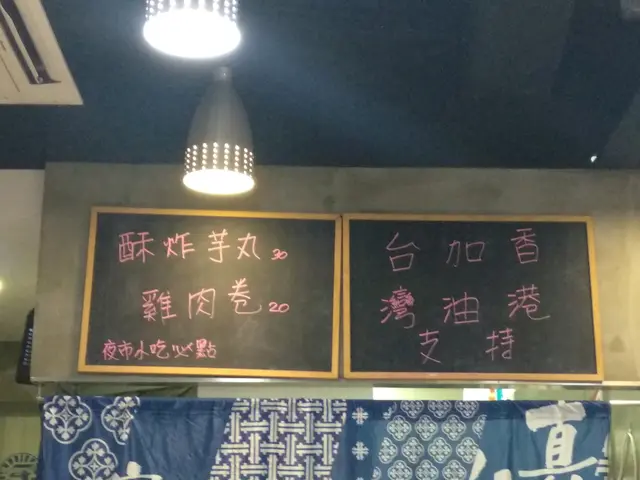 酥炸芋丸 30
雞肉卷 20
夜市小吃必點
香港
加油
台灣
支持
真